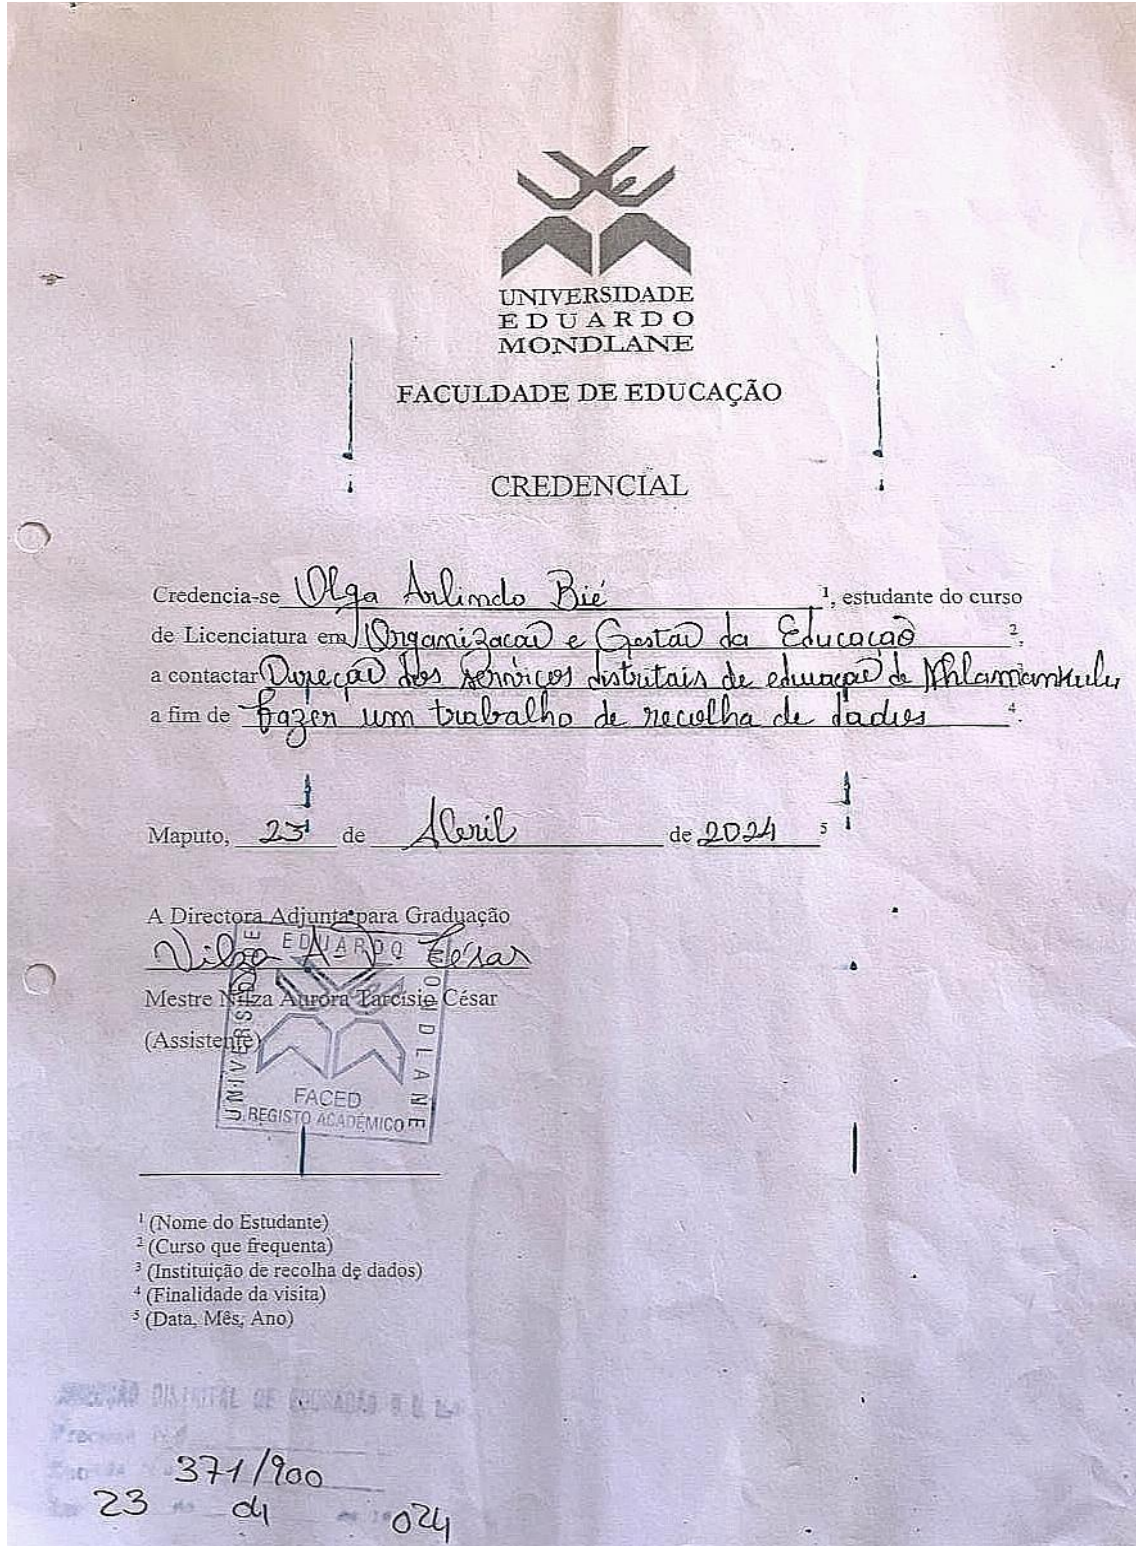 UNIVERSIDADE
EDUARDO
MONDLANE
FACULDADE DE EDUCAÇÃO
CREDENCIAL
Credencia-se Olga Arlindo Bié ¹, estudante do curso
de Licenciatura em Organização e Gestão da Educação ².
a contactar Direcção dos serviços distritais de educação de Nhlamankulu
a fim de fazer um trabalho de recolha de dados ⁴.
Maputo, 23 de Abril de 2024 ⁵
A Directora Adjunta para Graduação
Nilza A. T. César
Mestre Nilza Aurora Tarcísio César
(Assistente)
UNIVERSIDADE EDUARDO MONDLANE
FACED
REGISTO ACADÉMICO
¹ (Nome do Estudante)
² (Curso que frequenta)
³ (Instituição de recolha de dados)
⁴ (Finalidade da visita)
⁵ (Data, Mês, Ano)
DISTRITAL DE EDUCAÇÃO
371/900
23 04 024